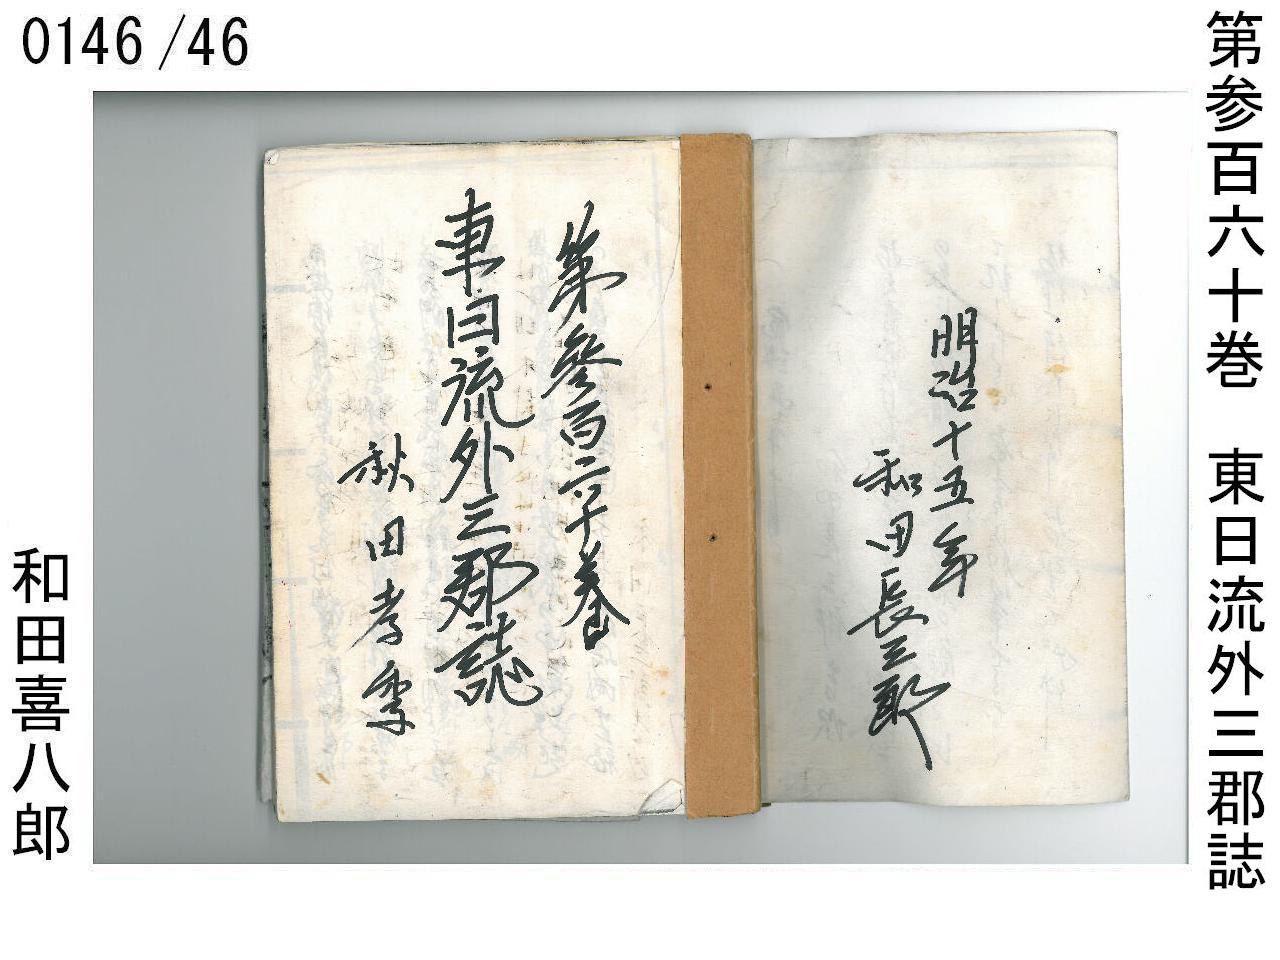 0146/46
第参百六十巻 東日流外三郡誌
明治十五年
和田長三郎
第參百六十巻
東日流外三郡誌
秋田孝季
和田喜八郎